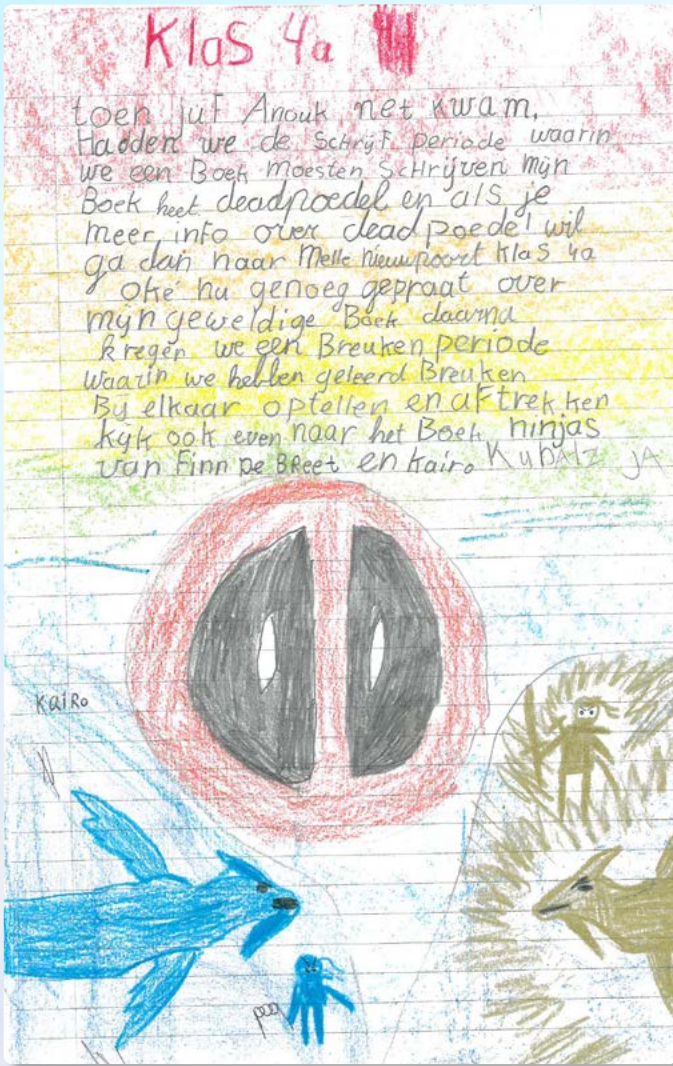 Klas 4a
toen juf Anouk net kwam,
Hadden we de Schrijf periode waarin
we een Boek moesten Schrijven mijn
Boek heet deadpoedel en als je
meer info over deadpoedel wil
ga dan naar Melle nieuwpoort klas 4a
oké nu genoeg gepraat over
mijn geweldige Boek daarna
kregen we een Breuken periode
waarin we hebben geleerd Breuken
Bij elkaar optellen en aftrekken
kijk ook even naar het Boek ninjas
van Finn De BReet en Kairo Kubatz JA
KaiRo